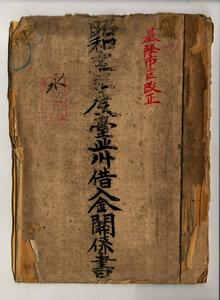 基隆市區改正
昭和年度臺北州借入金關係書
永